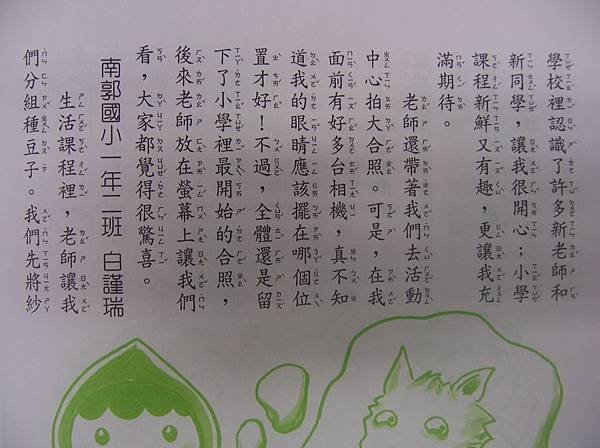 學校裡認識了許多新老師和
新同學，讓我很開心；小學
課程新鮮又有趣，更讓我充
滿期待。
老師還帶著我們去活動
中心拍大合照。可是，在我
面前有好多台相機，真不知
道我的眼睛應該擺在哪個位
置才好！不過，全體還是留
下了小學裡最開始的合照，
後來老師放在螢幕上讓我們
看，大家都覺得很驚喜。
南郭國小一年二班 白謹瑞
生活課程裡，老師讓我
們分組種豆子。我們先將紗